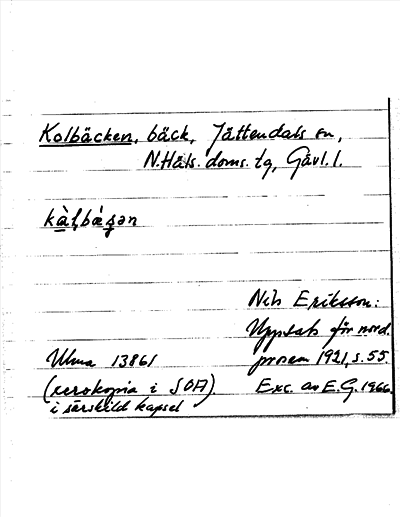 Kolbäcken, bäck, Jättendals sn,
N.Häls. doms. tg, Gävl. l.
kàl̥bạ́ʂən
Nils Eriksson:
Uppsats för nord.
Ulma 13861 prosem 1921, s. 55.
(xerokopia i SOA). Exc. av E.G. 1966.
i särskild kapsel